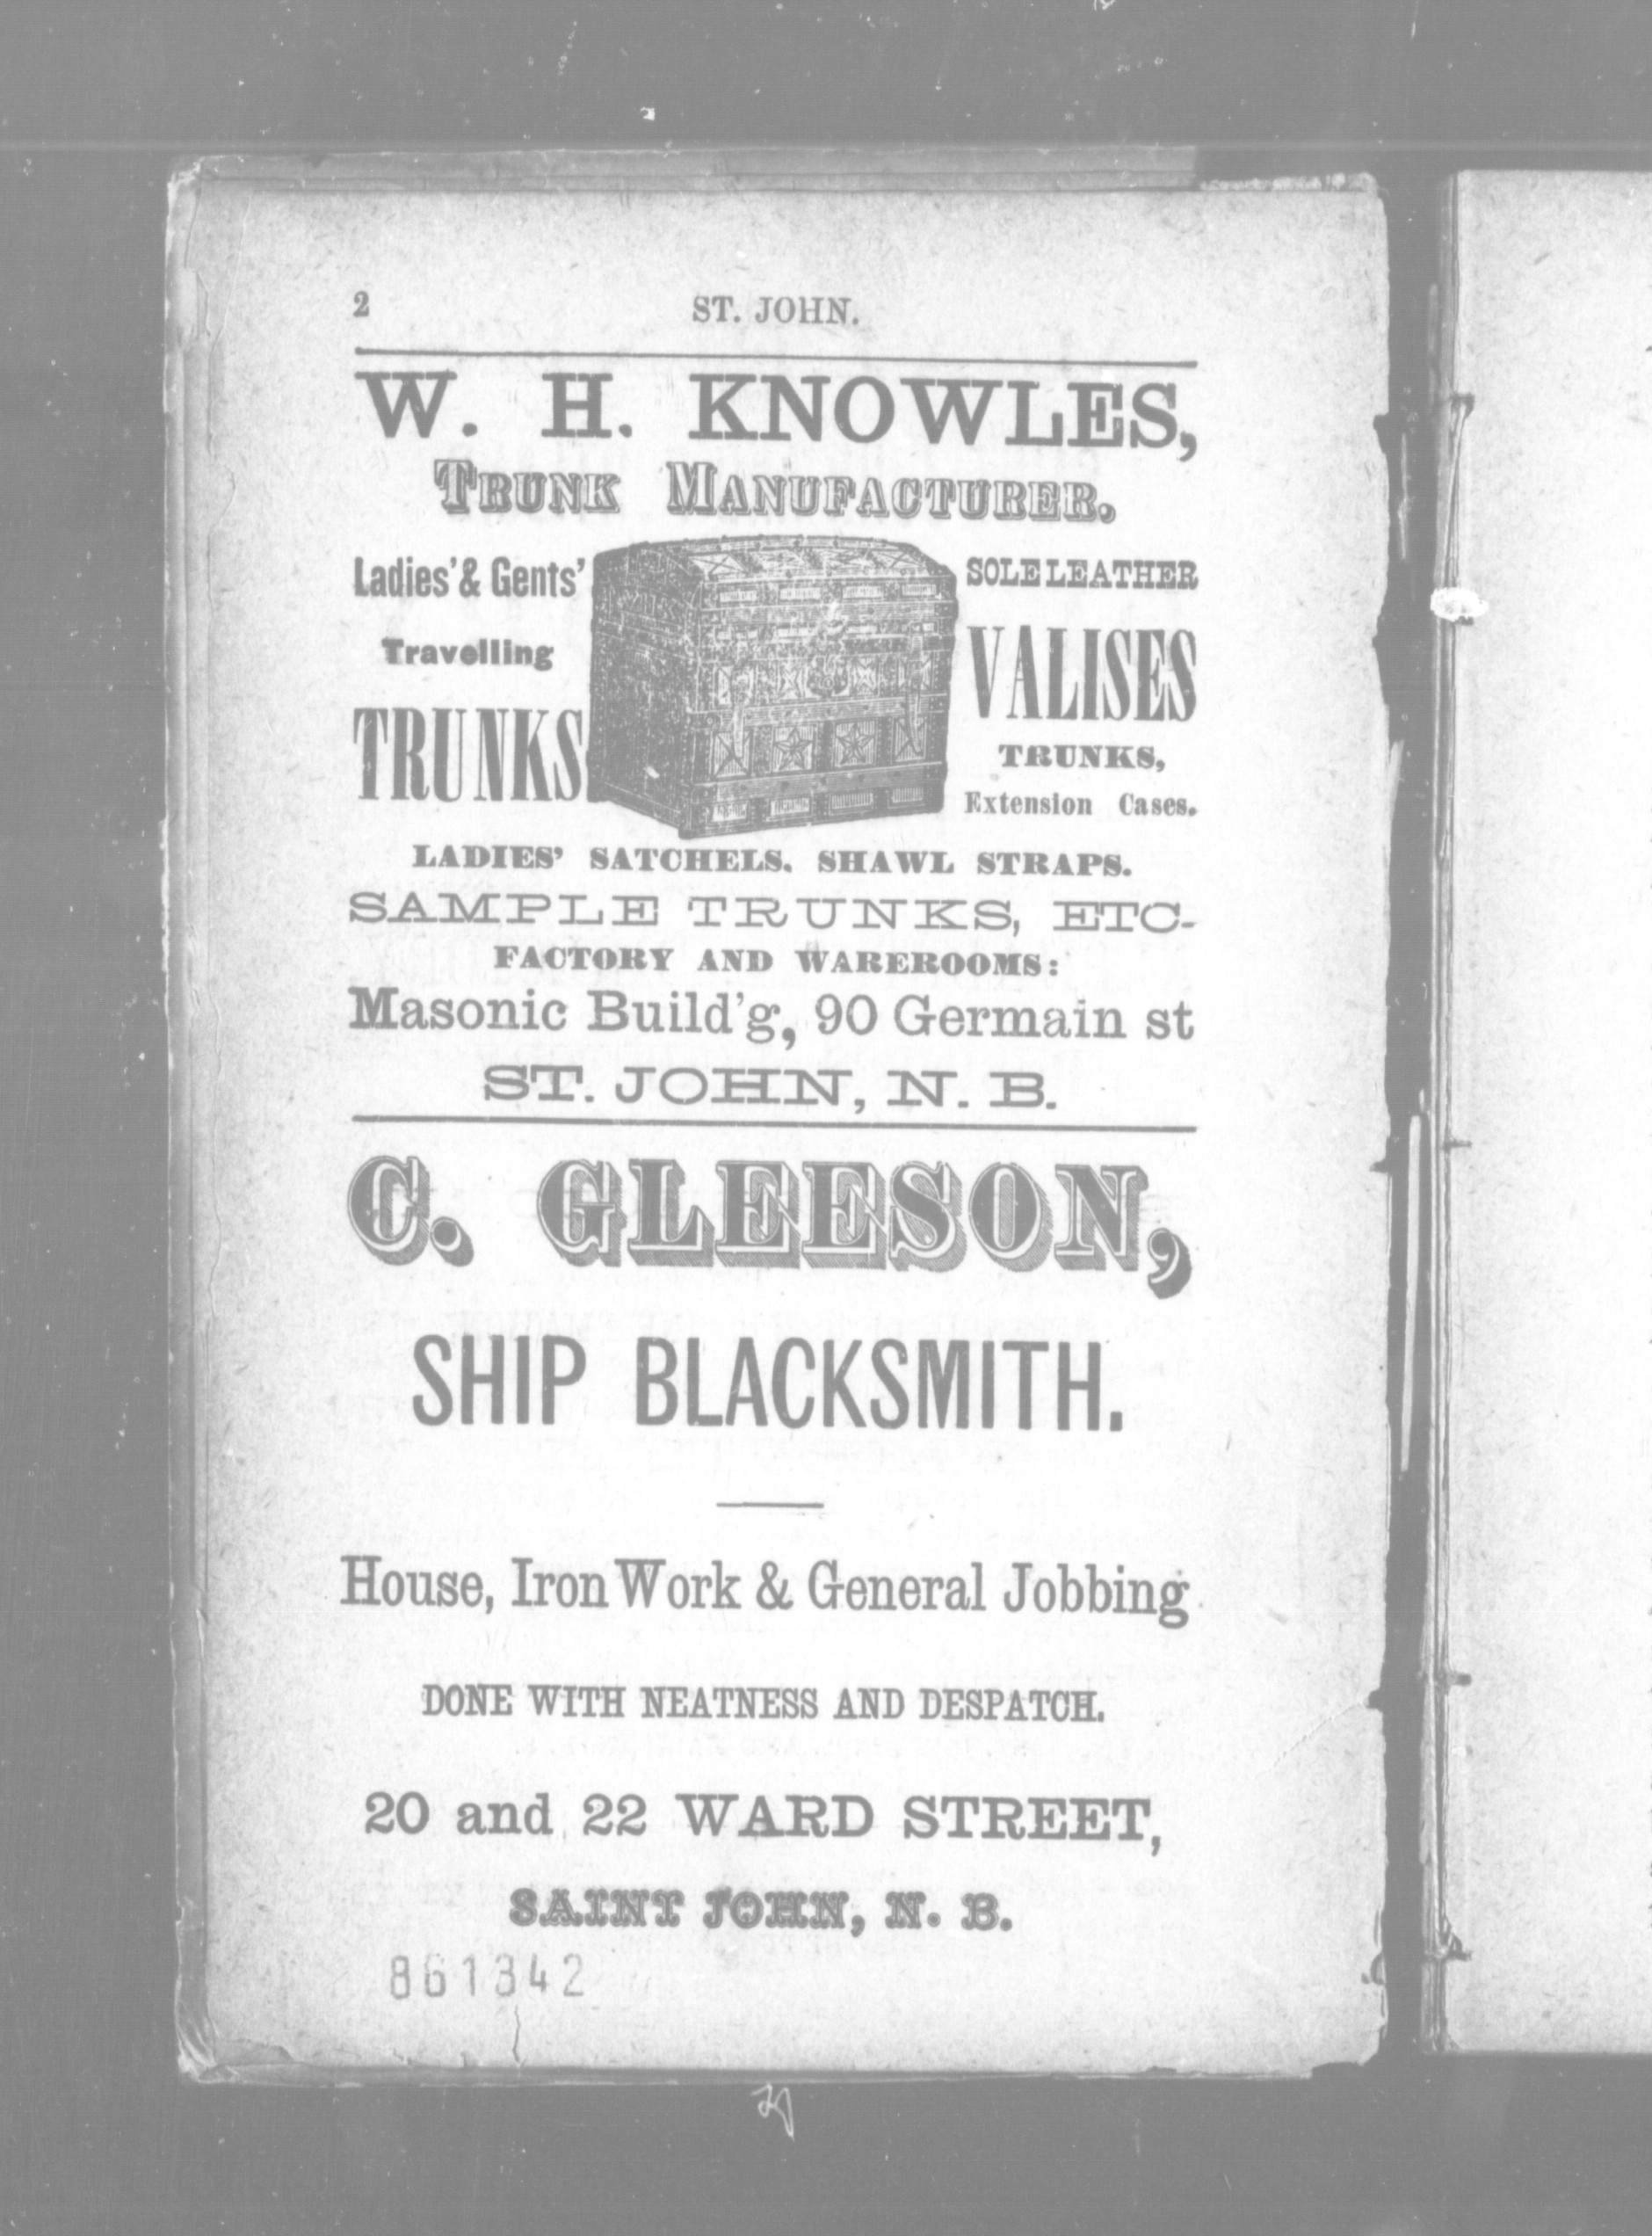 2 ST. JOHN.
W. H. KNOWLES,
TRUNK MANUFACTURER.
Ladies' & Gents'
Travelling
TRUNKS
SOLE LEATHER
VALISES
TRUNKS,
Extension Cases.
LADIES' SATCHELS. SHAWL STRAPS.
SAMPLE TRUNKS, ETC-
FACTORY AND WAREROOMS:
Masonic Build'g, 90 Germain st
ST. JOHN, N. B.
C. GLEESON,
SHIP BLACKSMITH.
House, Iron Work & General Jobbing
DONE WITH NEATNESS AND DESPATCH.
20 and 22 WARD STREET,
SAINT JOHN, N. B.
861342